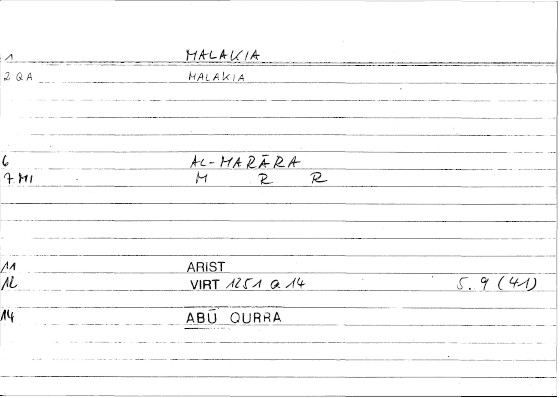 1 MALAKIA
2 QA MALAKIA
6 AL-MARĀRA
7 MI M R R
11 ARIST
12 VIRT 1251 a 14 5.9 (41)
14 ABŪ QURRA